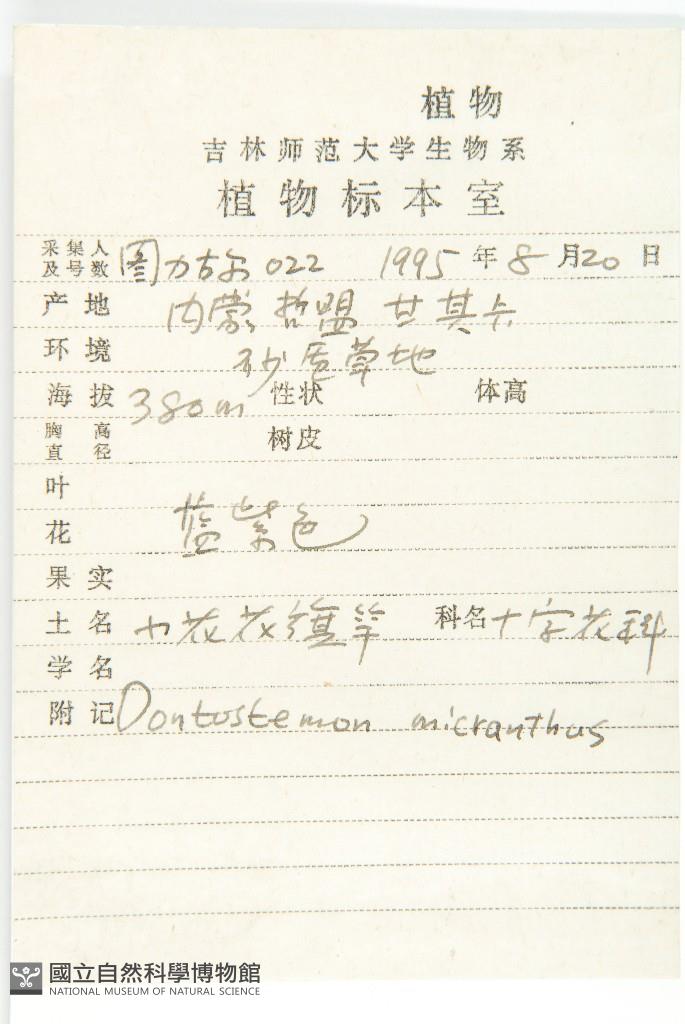 植物
吉林师范大学生物系
植物标本室
采集人及号数 图力古尔 022 1995年8月20日
产地 内蒙哲盟甘其卡
环境 砂质草地
海拔 380m 性状 体高
胸高直径 树皮
叶
花 蓝紫色
果实
土名 小花花旗竿 科名 十字花科
学名
附记 Dontostemon micranthus
國立自然科學博物館
NATIONAL MUSEUM OF NATURAL SCIENCE